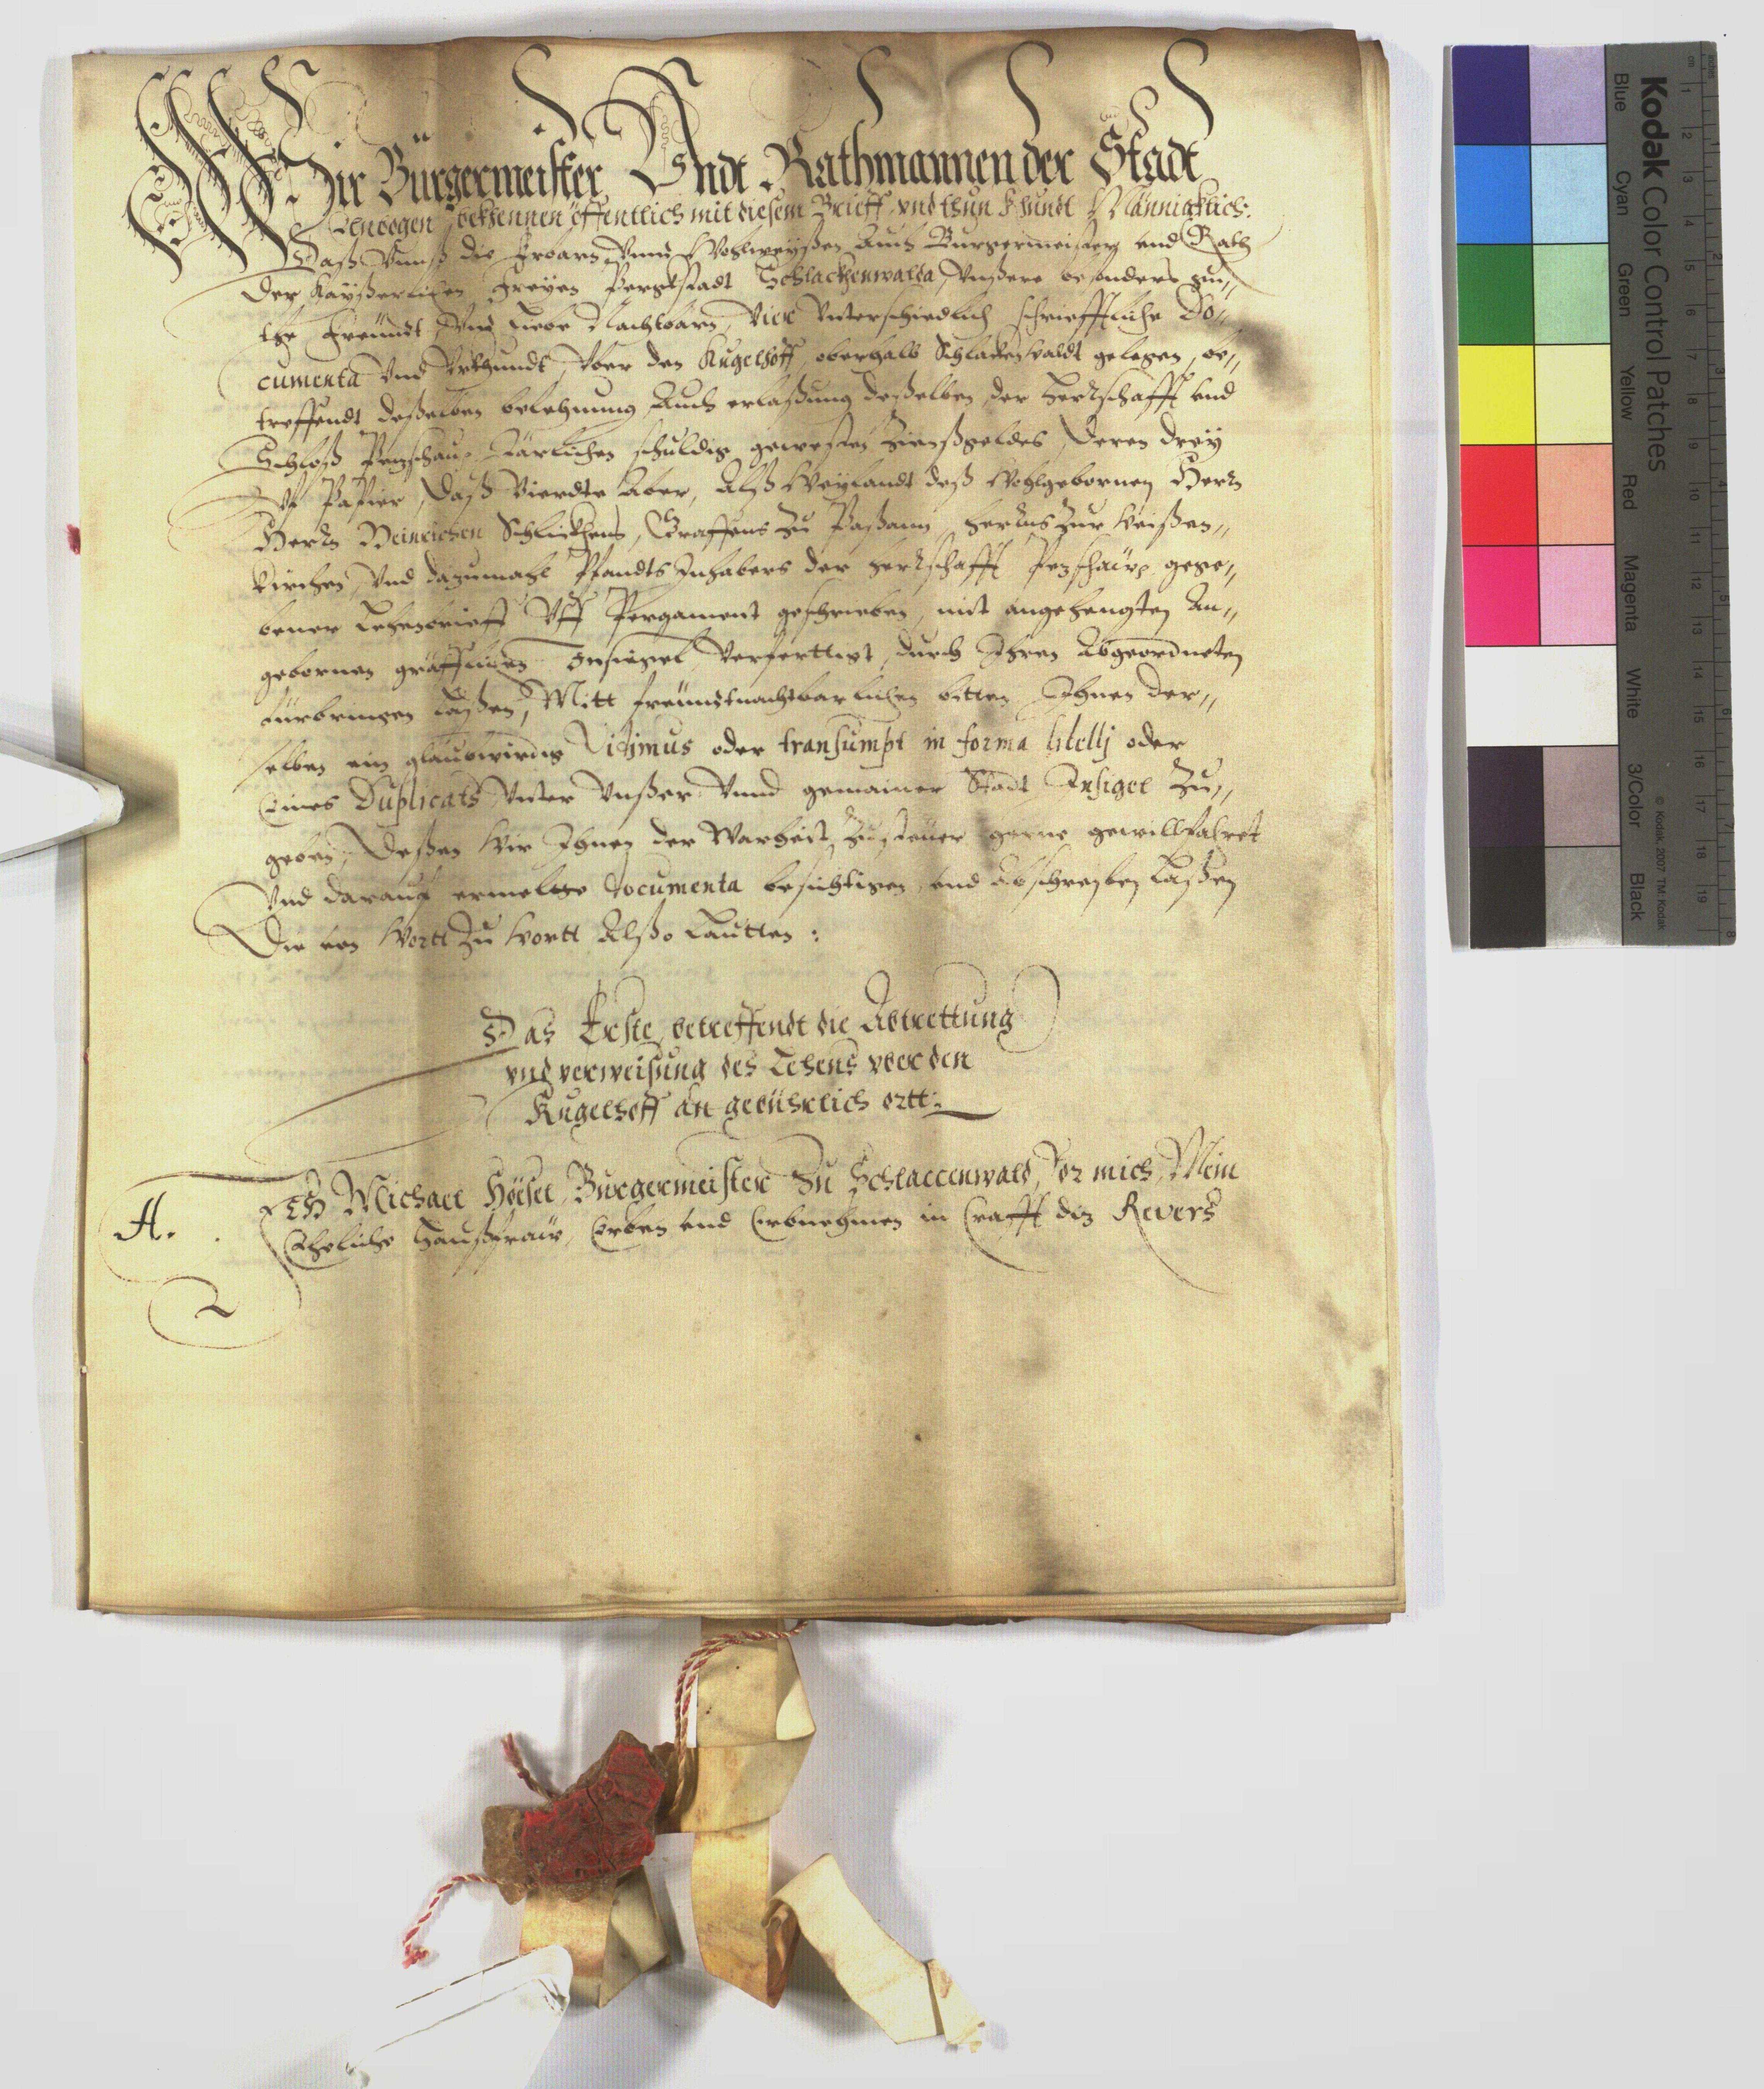 Wir Bürgermeister Undt Rathmannen der Stadt
Elnbogen, bekhennen öffentlich mit diesem Brieff, vnd thun khundt Männigklich:
Daß Vnnß die Erbarn Vnnd Wohlweyßen Auch Burgermeister vnd Rath
Der Kayßerlichen Freyen Pergkstadt Schlackhenwalda, Vnßere besonders gu,,
the Freündt Vnd Liebe Nachtbarn, Vier Vnterschiedlich schriefftliche Do,,
cumenta Vnd Vrkhundt, Vber den Kugelhoff, oberhalb Schlackenwaldt gelegen, be,,
treffendt deßelben belehnung, Auch erlaßung deßelben, der Herrschafft vnd
Schloß Petzschau Järlichen schuldig gewesten Zienßgeldes, Deren drey
Vf Papier, Daß Vierdte Aber, Alß Weylandt deß Wohlgebornen Herrn
Herrn Heinrichen Schlickhens, Graffens Zu Paßaun, Herrns Zur Weißen,,
kirchen, Vnd dazumahl Pfandts Inhabers der Herrschafft Petzschaüw gege,,
bener Lehenbrieff Vff Pergament geschrieben, mit angehengten An,,
gebornen gräfflichen Insiegel Verferttigt, durch Ihren Abgeordneten
fürbringen laßen, Mitt freündtnachtbarlichen bitten, Ihnen der,,
selben ein glaubwirdig Vidimus oder transumpt in forma libellj oder
Eines Duplicats Vnter Vnßer Vnnd gemainer Stadt Insigel Zu,,
geben, Deßen Wir Ihnen der Warheit Zusteuer gerne gewillfahret
Vnd darauf ermelte documenta besichtigen, vnd Abschreyben laßen
Die von Wortt Zu Wortt Alßo Lautten:
Das Erste, betreffendt die Abtrettung
vnd verweisung des Lehens vber den
Kugelhoff an gebührlich ortt:
A.
Ich Michael Höesel, Burgermeister Zu Schlaccenwald, Vor mich, Mein
Eheliche Haußfraüw, Erben vnd Erbnehmen in Crafft ditz Revers
Kodak Color Control Patches
Blue
Cyan
Green
Yellow
Red
Magenta
White
3/Color
Black
© Kodak, 2007 TM: Kodak